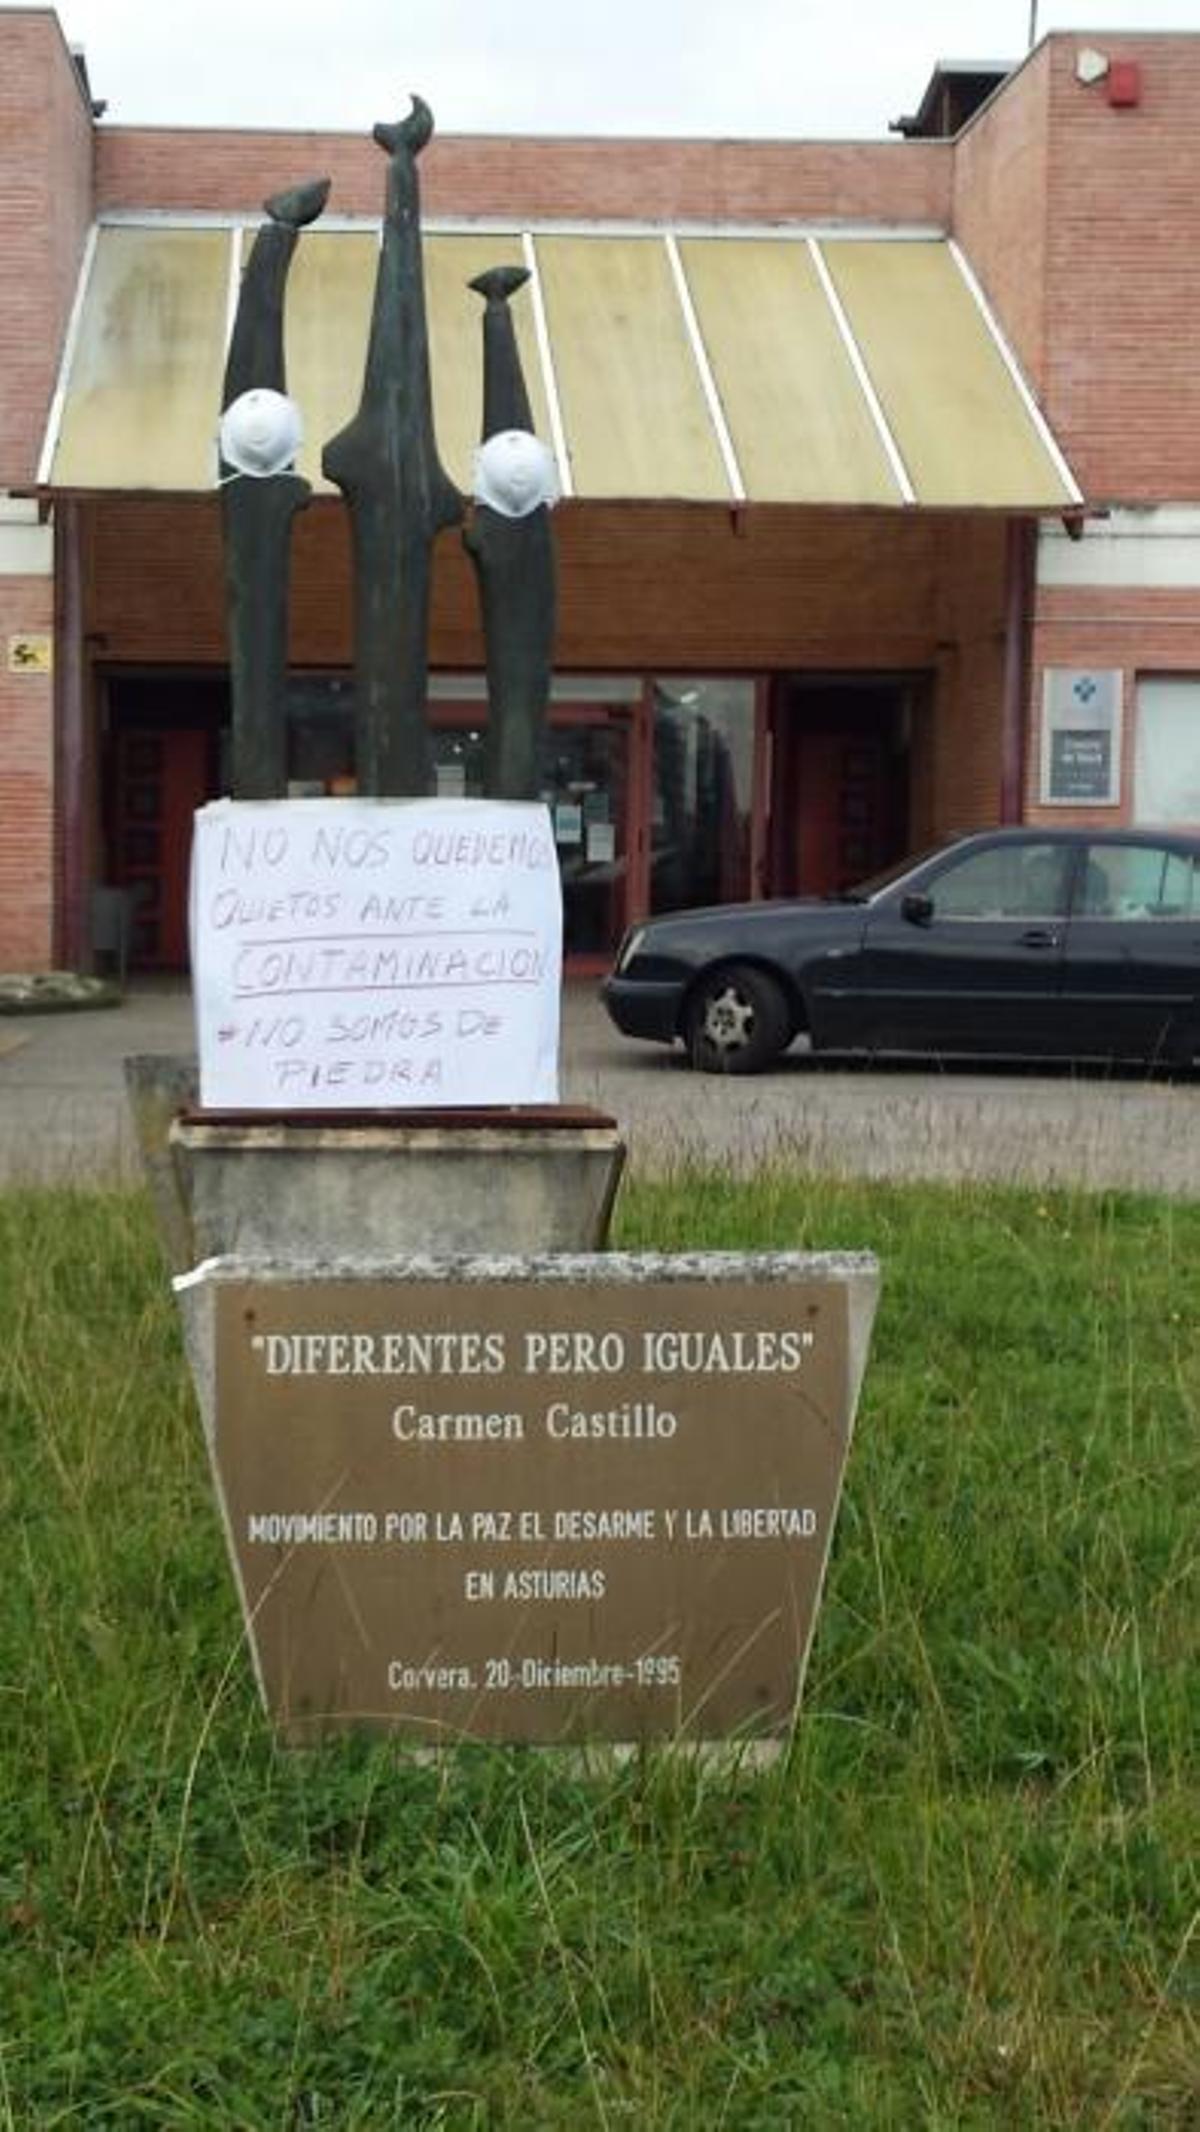 NO NOS QUEDEMOS
QUIETOS ANTE LA
CONTAMINACION
*NO SOMOS DE
PIEDRA
"DIFERENTES PERO IGUALES"
Carmen Castillo
MOVIMIENTO POR LA PAZ EL DESARME Y LA LIBERTAD
EN ASTURIAS
Corvera, 20-Diciembre-1995